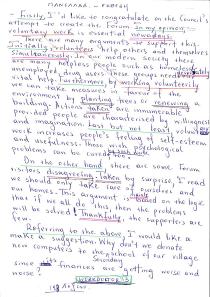 Firstly, I'd like to congratulate on the Council's
attempt to create the Forum. In my opinion
voluntary work is essential nowadays.
There are many arguments to support this.
Initially, volunteers help others and themselves
simultaneously. In our modern society there
are many helpless people such as homeless,
unemployed, drug users these groups need
vital help. Furthermore by working voluntarily
we can take measures in favour of the
environment by planting trees or renewing a
building. Actions taken are innumerable
provided people are characterised by willingness
and imagination. Last but not least, voluntary
work increases people's feeling of self-esteem
and usefulness. Thus psychological
problems can be
On the other hand there are some Forum
visitors disagreeing. Taken by surprise, I read
we should only take care of ourselves and
our homes. An argument based on the logic
that if we all do thus then the problems
will be solved! Thankfully, the supporters are
few.
Referring to the above, I would like to
make a suggestion. Why don't we donate
new computers to the school of our village
since finances are getting worse and
worse?